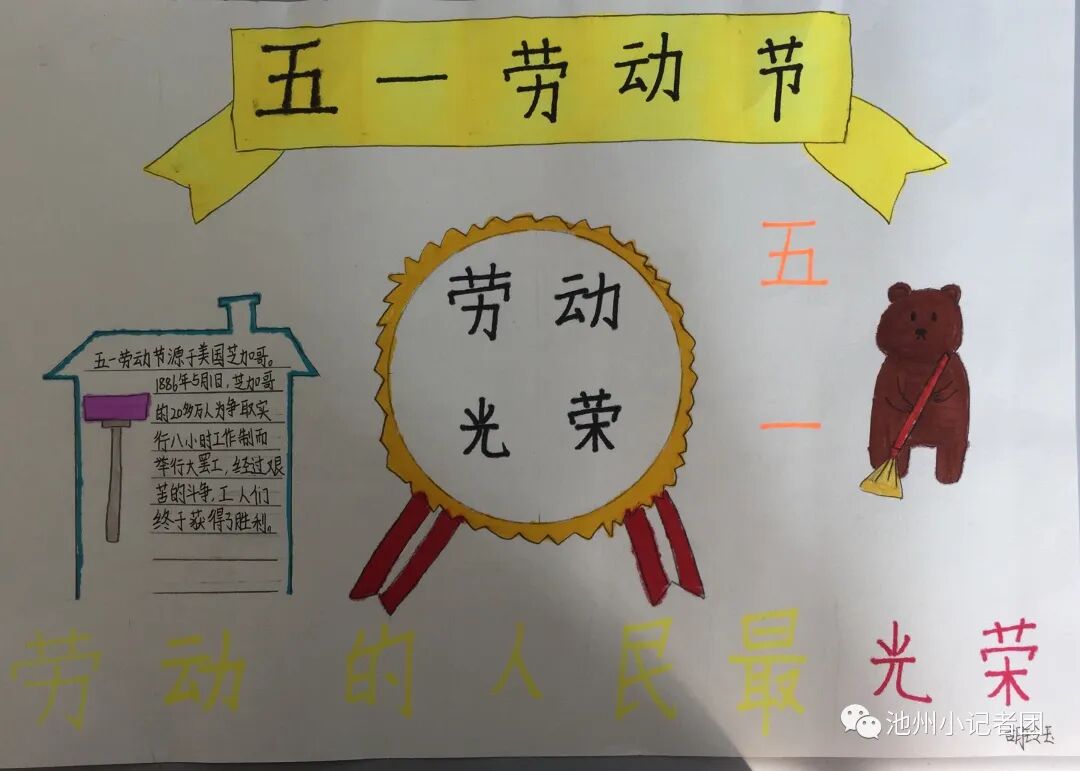 五一劳动节
劳动
光荣
五
一
五一劳动节源于美国芝加哥。
1886年5月1日,芝加哥
的20多万人为争取实
行八小时工作制而
举行大罢工,经过艰
苦的斗争,工人们
终于获得了胜利。
劳动的人民最光荣
池州小记者团